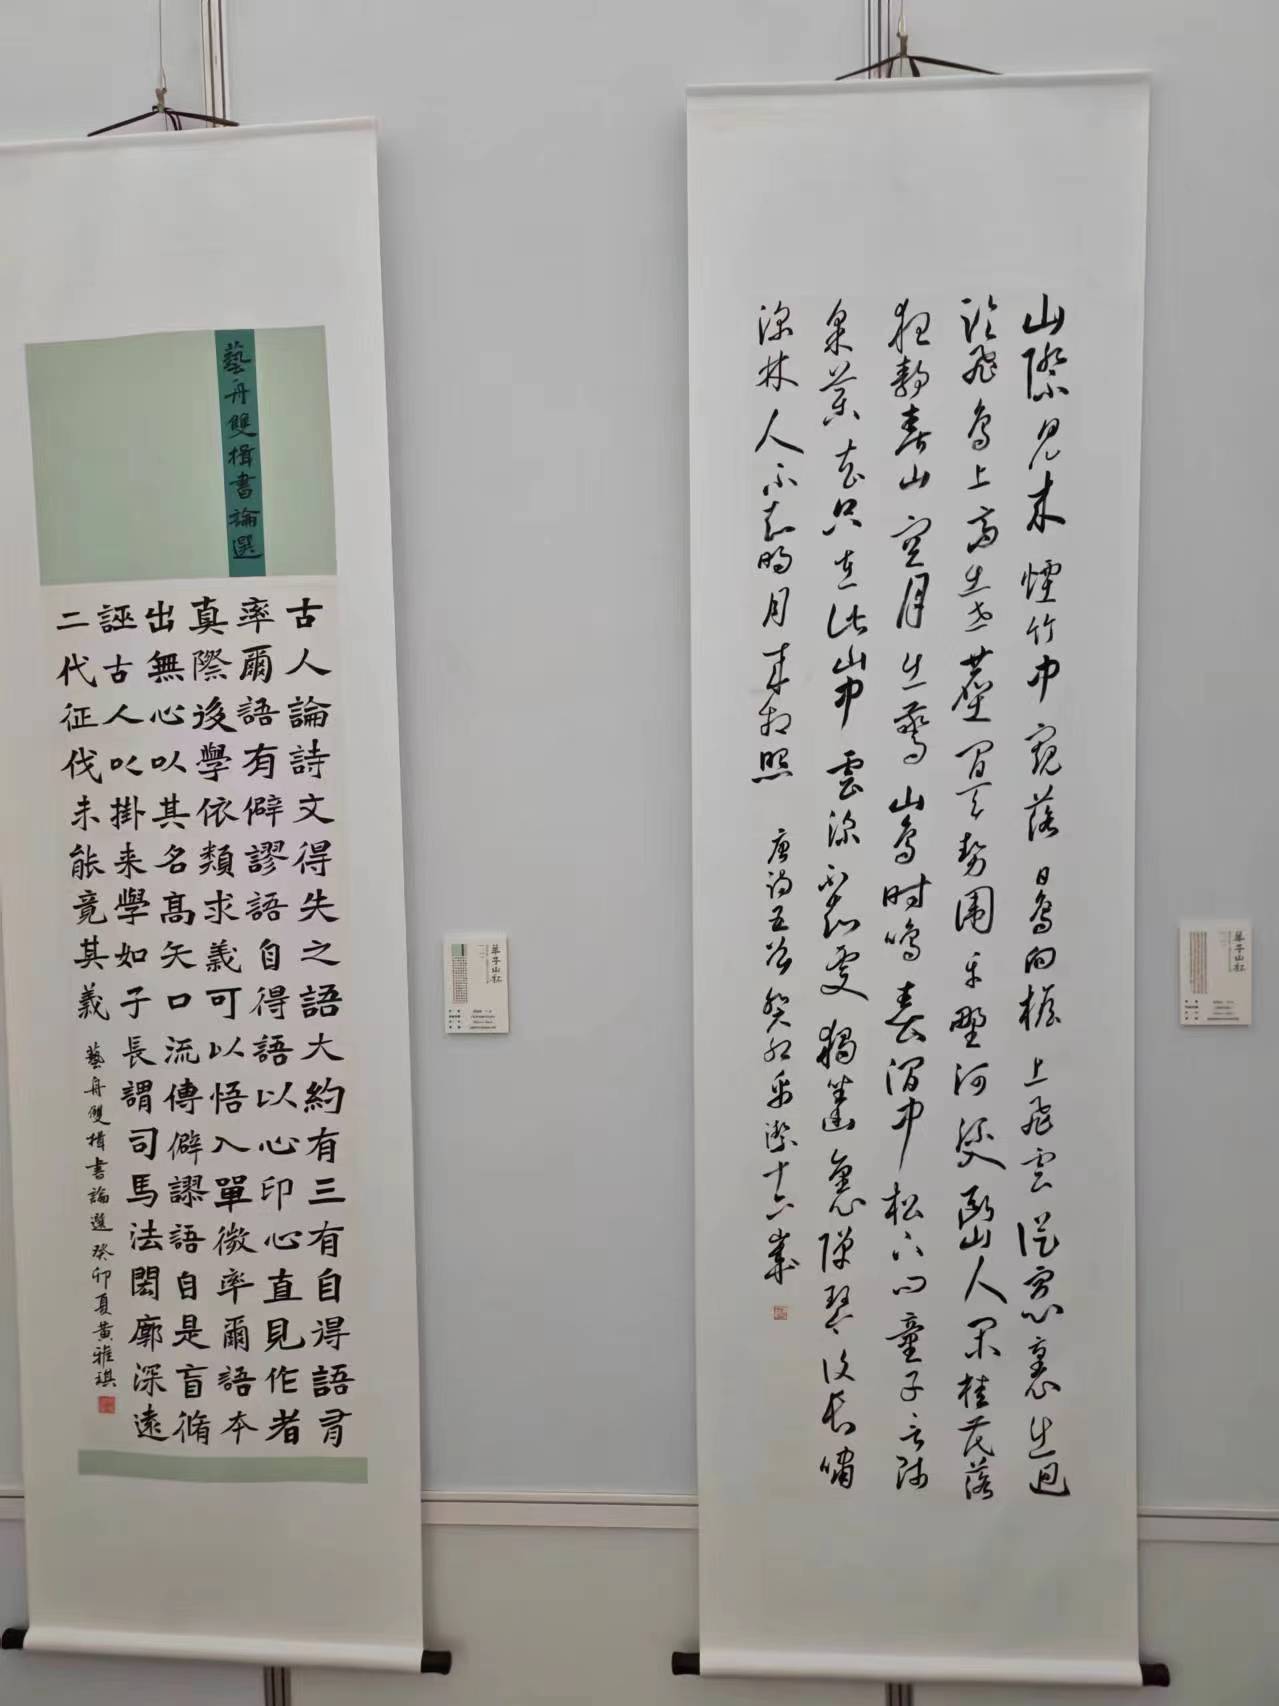 藝舟雙楫書論選
古人論詩文得失之語大約有三有自得語有
率爾語有僻謬語自得語以心印心直見作者
真際後學依類求義可以悟入單微率爾語本
出無心以其名高矢口流傳僻謬語自是盲脩
誣古人以掛来學如子長謂司馬法閎廓深遠
二代征伐未能竟其義
藝舟雙楫書論選 癸卯夏黃雅琪
山際見来煙竹中窺落日鳥向檐上飛雲從窗裏出迥
臨飛鳥上高出世塵間天勢圍平野河流入斷山人閑桂花落
夜静春山空月出驚山鳥時鳴春澗中松下問童子言師
采藥去只在此山中雲深不知處獨坐幽篁裏彈琴復長嘯
深林人不知明月来相照 唐詩五首癸卯